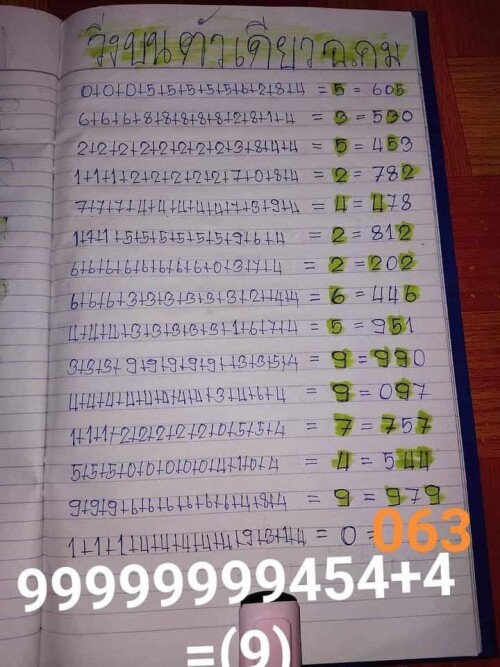 วิ่งบนตัวเดียวอ.คม
0+0+0+5+5+5+5+5+6+2+8+4 = 5 = 605
6+6+6+8+8+8+8+8+2+8+1+4 = 3 = 530
2+2+2+2+2+2+2+2+3+8+4+4 = 5 = 453
1+1+1+2+2+2+2+2+7+0+8+4 = 2 = 782
7+7+7+4+4+4+4+4+7+3+9+4 = 4 = 478
1+1+1+5+5+5+5+5+9+6+4 = 2 = 812
6+6+6+6+6+6+6+6+0+3+7+4 = 2 = 202
6+6+6+3+3+3+3+3+3+2+4+4 = 6 = 446
4+4+4+3+3+3+3+3+1+6+7+4 = 5 = 951
3+3+3+9+9+9+9+9+3+3+5+4 = 9 = 990
4+4+4+4+4+4+4+4+3+4+6+4 = 9 = 097
1+1+1+2+2+2+2+2+0+5+5+4 = 7 = 757
5+5+5+0+0+0+0+0+4+1+0+4 = 4 = 544
9+9+9+6+6+6+6+6+6+4+8+4 = 9 = 979
1+1+1+4+4+4+4+4+9+3+1+4 = 0 = 063
99999999454+4
=(9)